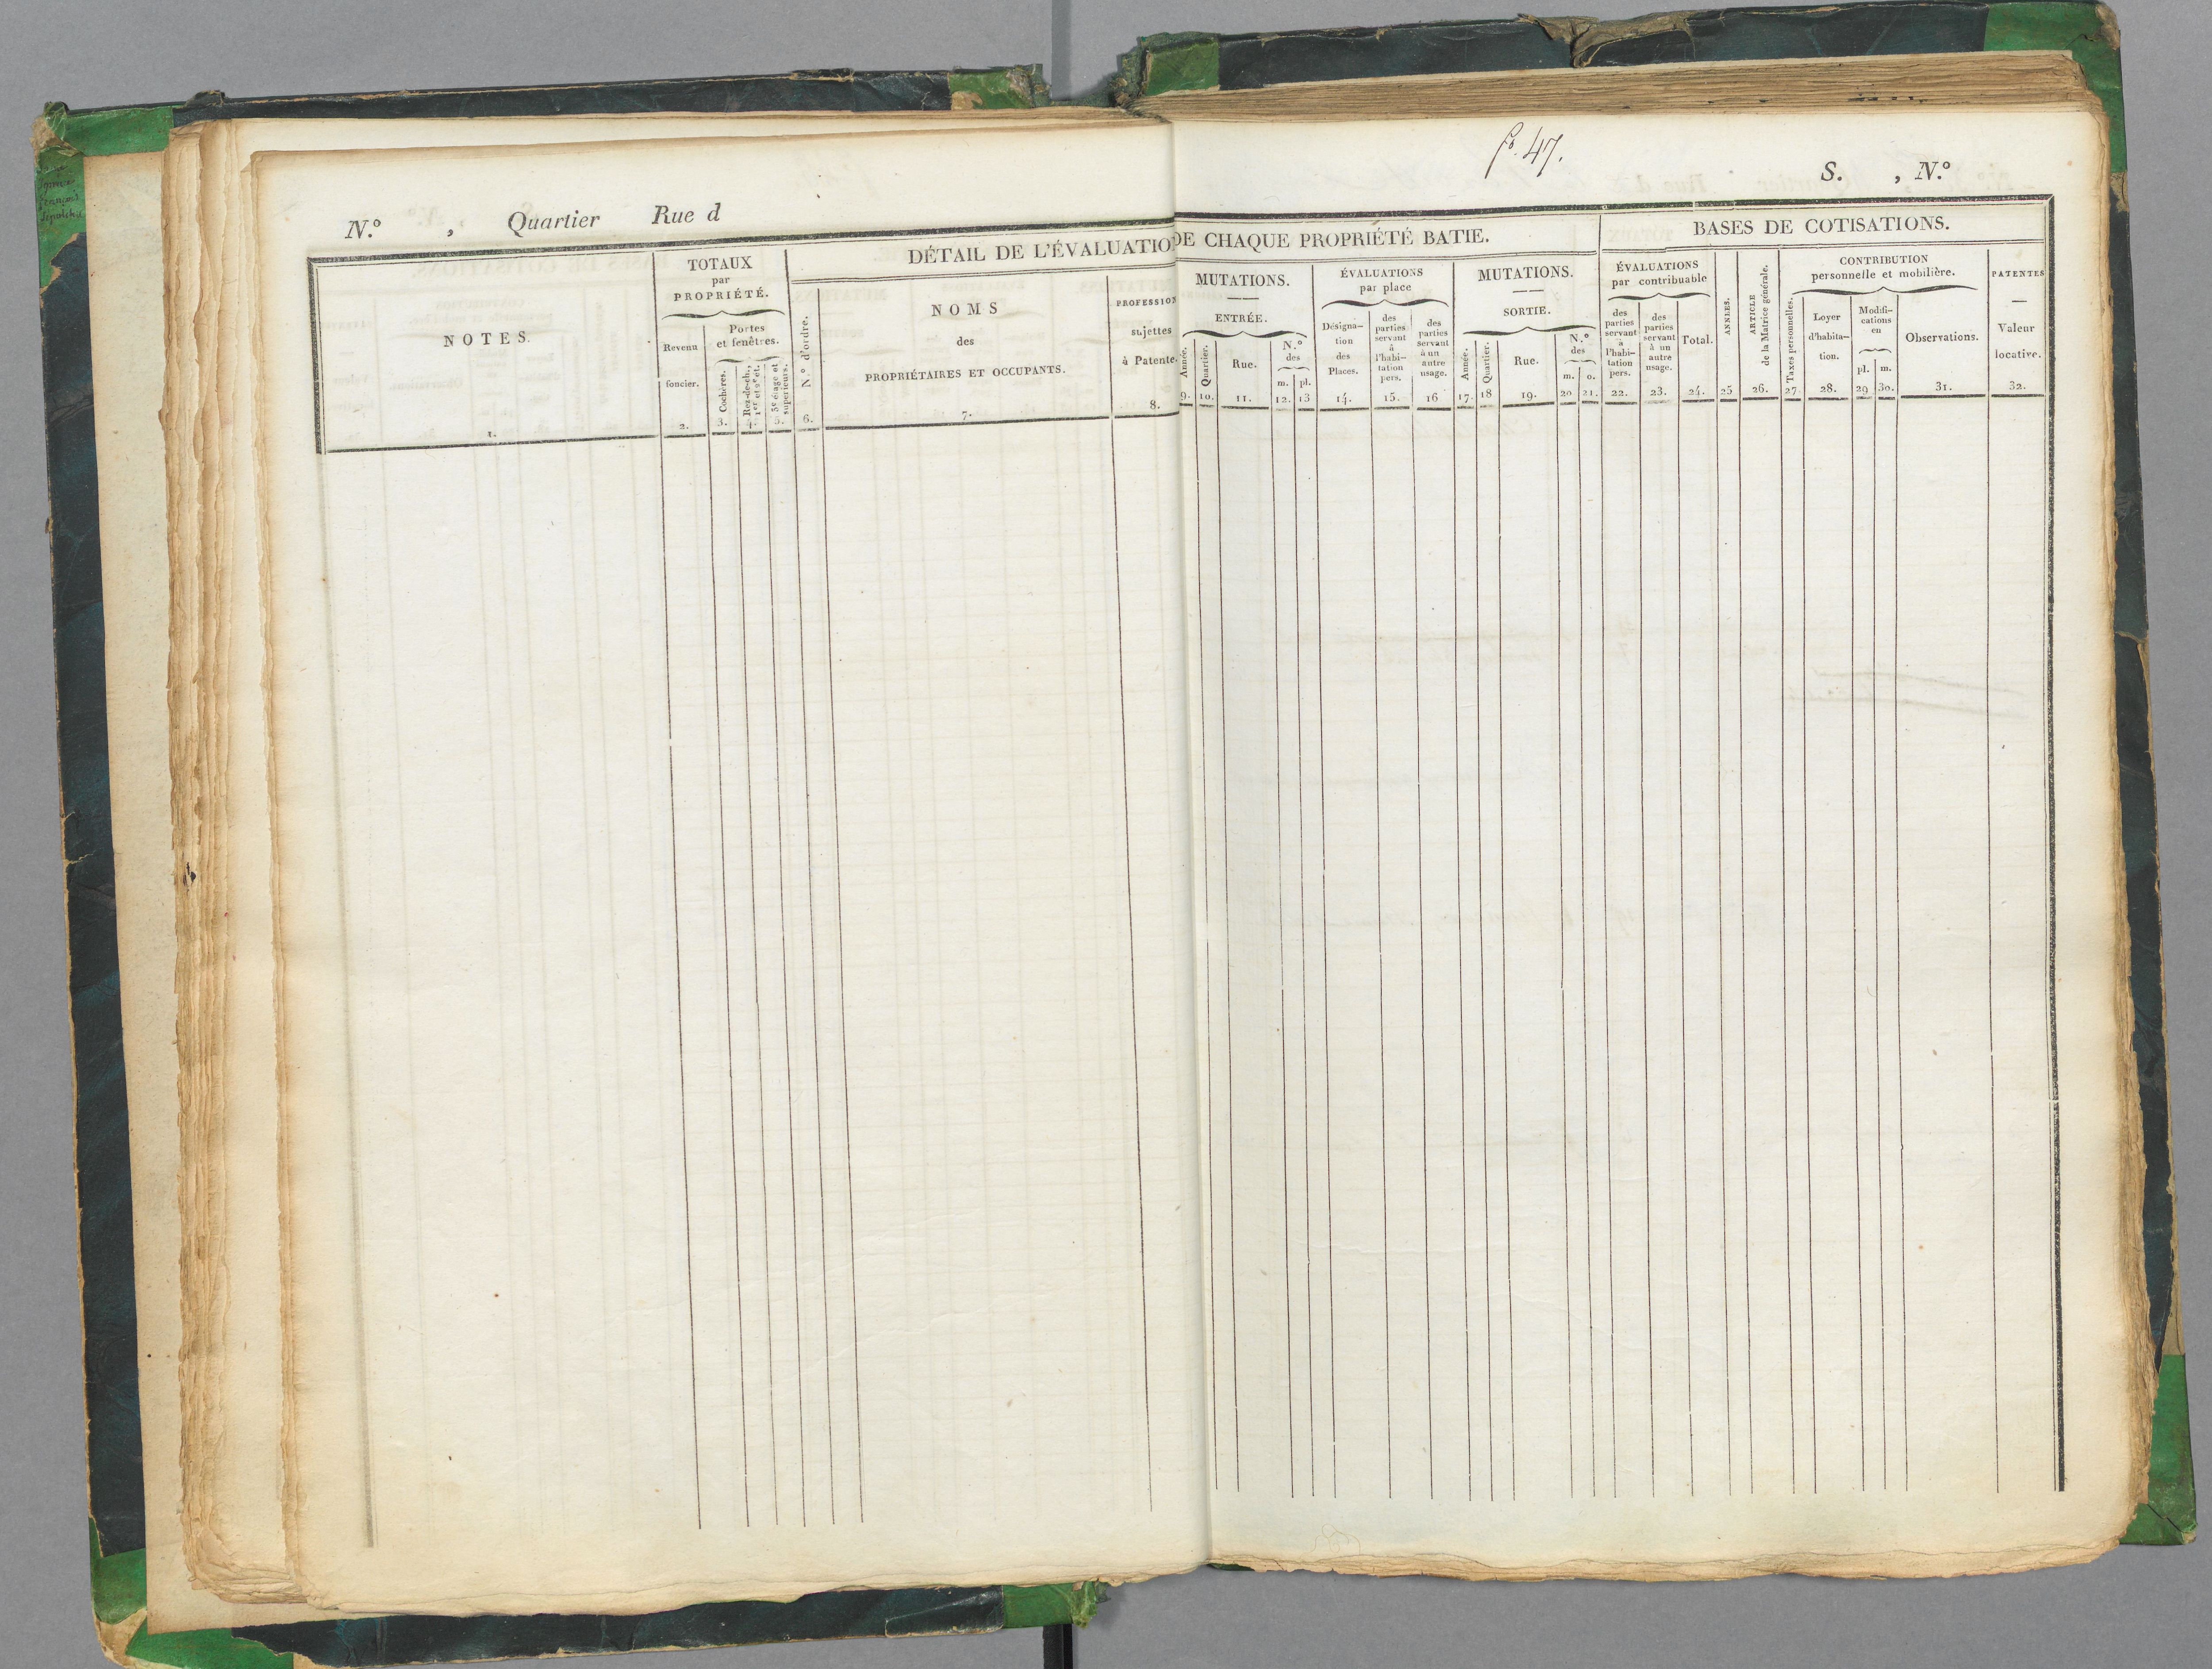 f.º 47.
N.º , Quartier Rue d
S. , N.º
DÉTAIL DE L'ÉVALUATIO DE CHAQUE PROPRIÉTÉ BATIE.
BASES DE COTISATIONS.
NOTES.
1.
TOTAUX
par
PROPRIÉTÉ.
Revenu
foncier.
2.
Portes
et fenêtres.
Cochères.
3.
Rez-de-ch.,
1er et 2e ét.
4.
3e étage et
supérieurs.
5.
N.º d'ordre.
6.
NOMS
des
PROPRIÉTAIRES ET OCCUPANTS.
7.
PROFESSION
sujettes
à Patente
8.
MUTATIONS.
ENTRÉE.
Année.
9.
Quartier.
10.
Rue.
11.
N.º
des
m. pl.
12. 13
ÉVALUATIONS
par place
Désigna-
tion
des
Places.
14.
des
parties
servant
à
l'habi-
tation
pers.
15.
des
parties
servant
à un
autre
usage.
16
MUTATIONS.
SORTIE.
Année.
17.
Quartier.
18
Rue.
19.
N.º
des
m. o.
20 21.
ÉVALUATIONS
par contribuable
des
parties
servant
à
l'habi-
tation
pers.
22.
des
parties
servant
à un
autre
usage.
23.
Total.
24.
ANNÉES.
25
ARTICLE
de la Matrice générale.
26.
CONTRIBUTION
personnelle et mobilière.
Taxes personnelles.
27
Loyer
d'habita-
tion.
28.
Modifi-
cations
en
pl. m.
29 30.
Observations.
31.
PATENTES
Valeur
locative.
32.